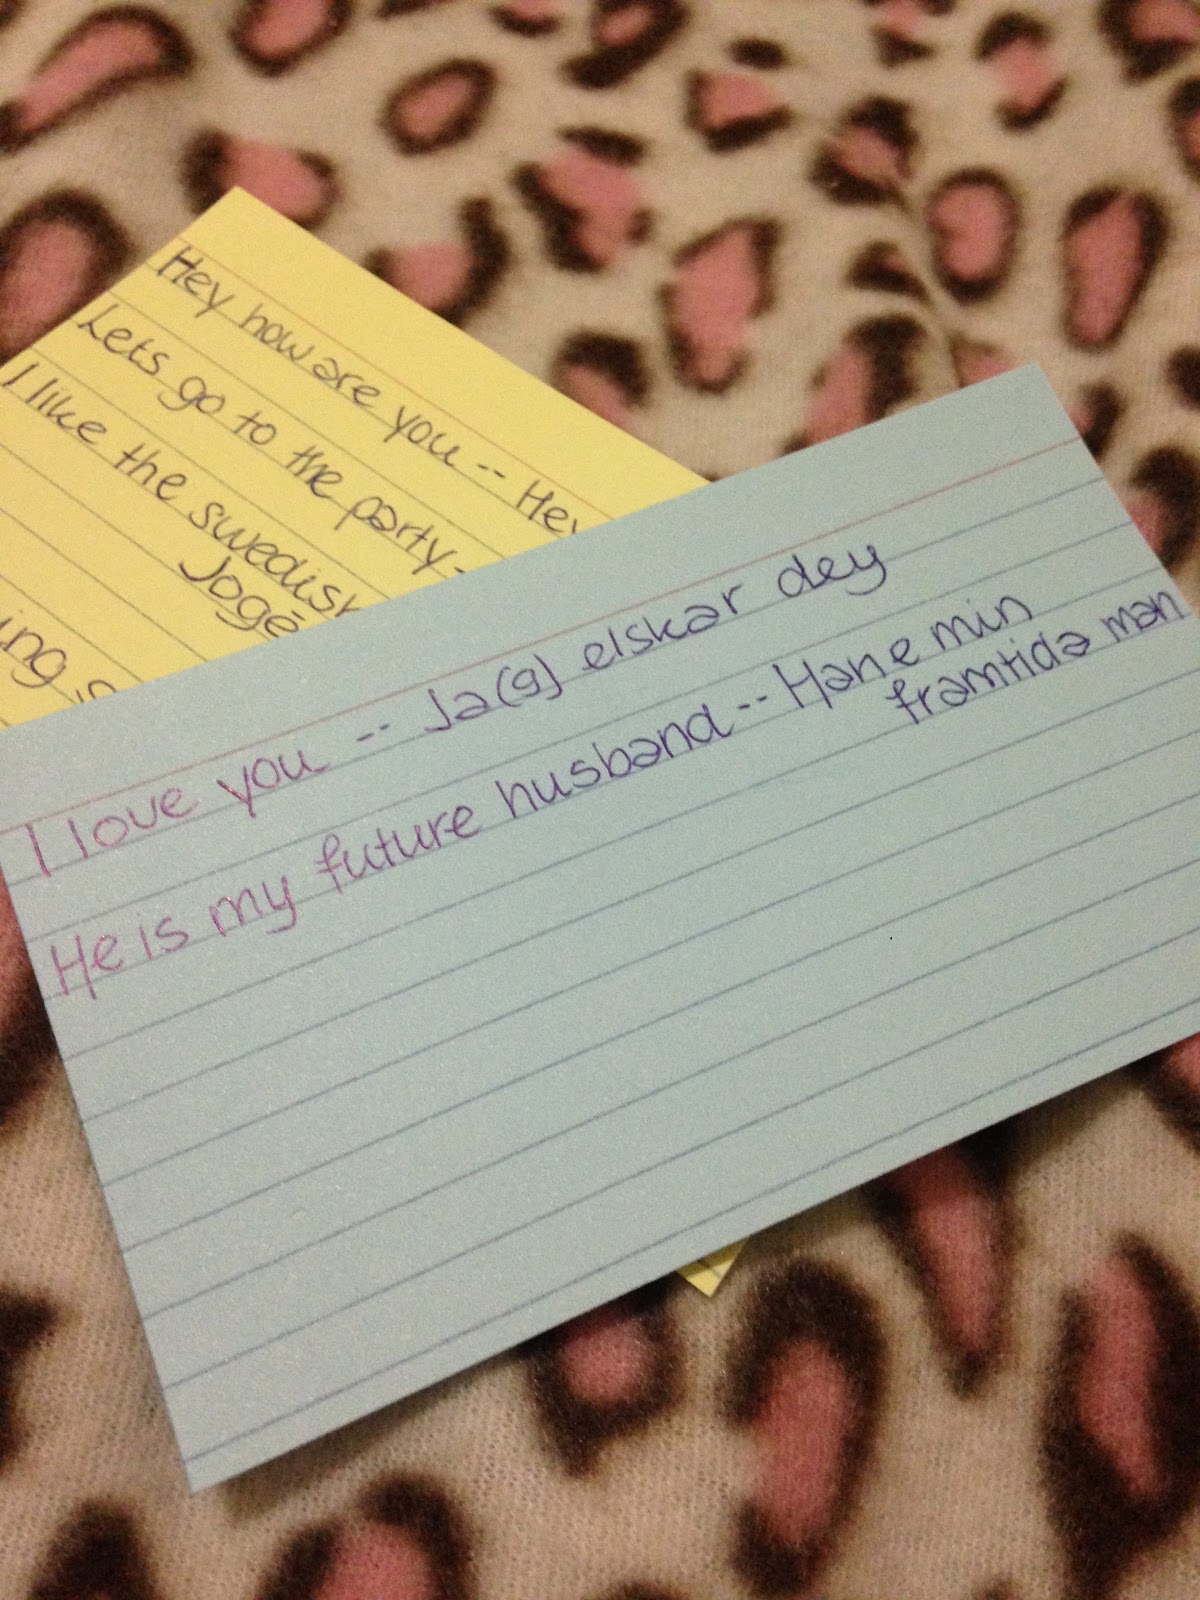 Hey how are you -- Hey
Lets go to the party-
I like the swedish
Joge
ing
I love you -- Ja(g) elskar dey
He is my future husband -- Han e min
framtida man